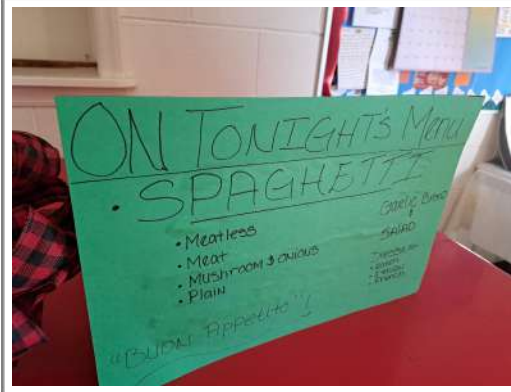 ON TONIGHT'S Menu
• SPAGHETTI
• Meatless
• Meat
• Mushroom & onions
• Plain
GARLIC Bread
&
SALAD
• Ranch
• Italian
• French
"BUON Appetito"!